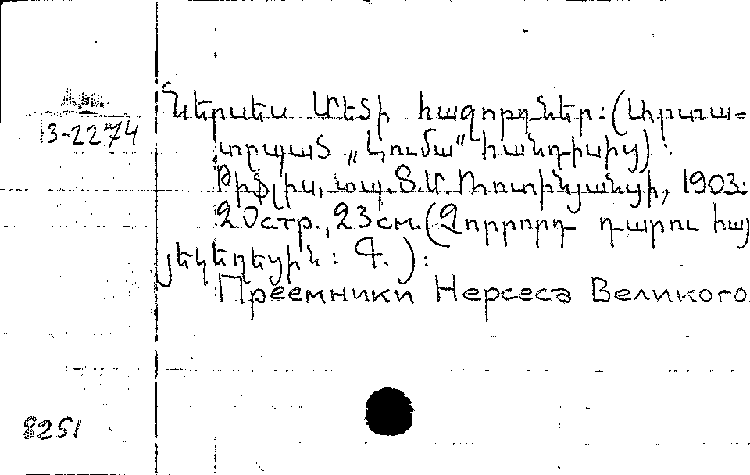 Арм.
3-2274
Ներսես Մեծի հաջորդներ: (Արտա-
տրպած „Լումա“ հանդիսից):
Թիֆլիս, տպ. Տ. Մ. Ռոտինյանցի, 1903:
20стр., 23см. (Չորրորդ դարու հայ
յեկեղեցին: Գ.):
Преемники Нерсеса Великого
8251